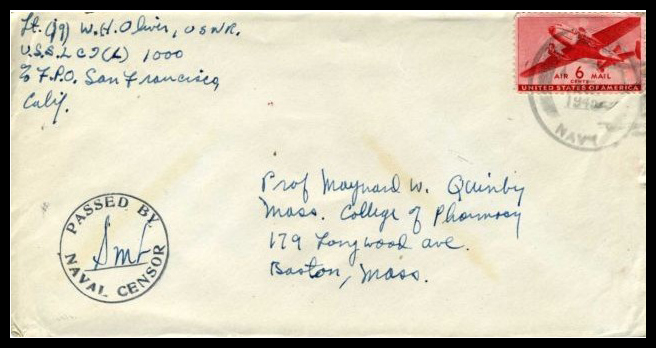 Lt. (jg) W. H. Oliver, USNR.
U.S.S. LCI(L) 1000
% F.P.O. San Francisco,
Calif.
AIR 6 MAIL
CENTS
UNITED STATES OF AMERICA
NAVY
Prof Maynard W. Quimby
Mass. College of Pharmacy
179 Longwood ave.
Boston, Mass.
PASSED BY
NAVAL CENSOR